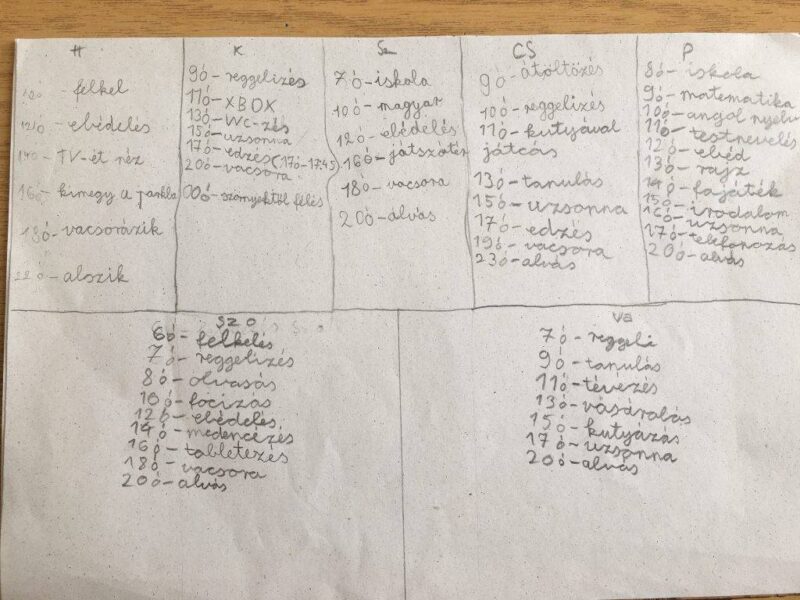 H
10ó - felkel
12ó - ebédelés
14ó - TV-ét néz
16ó - kimegy a parkba
18ó - vacsorázik
22ó - alszik
K
9ó - reggelizés
11ó - XBOX
13ó - WC-zés
15ó - uzsonna
17ó - edzés (17ó-17:45)
20ó - vacsora
00ó - szörnyektől félés
Sz
7ó - iskola
10ó - magyar
12ó - ebédelés
16ó - játszótér
18ó - vacsora
20ó - alvás
CS
9ó - átöltözés
10ó - reggelizés
11ó - kutyával
játcás
13ó - tanulás
15ó - uzsonna
17ó - edzés
19ó - vacsora
23ó - alvás
P
8ó - iskola
9ó - matematika
10ó - angol nyelv
11ó - testnevelés
12ó - ebéd
13ó - rajz
14ó - fajáték
15ó - irodalom
16ó - uzsonna
17ó - telefonozás
20ó - alvás
SZO
6ó - felkelés
7ó - reggelizés
8ó - olvasás
10ó - focizás
12ó - ebédelés
14ó - medencézés
16ó - tabletezés
18ó - vacsora
20ó - alvás
Va
7ó - reggeli
9ó - tanulás
11ó - tévézés
13ó - vásárolás
15ó - kutyázás
17ó - uzsonna
20ó - alvás